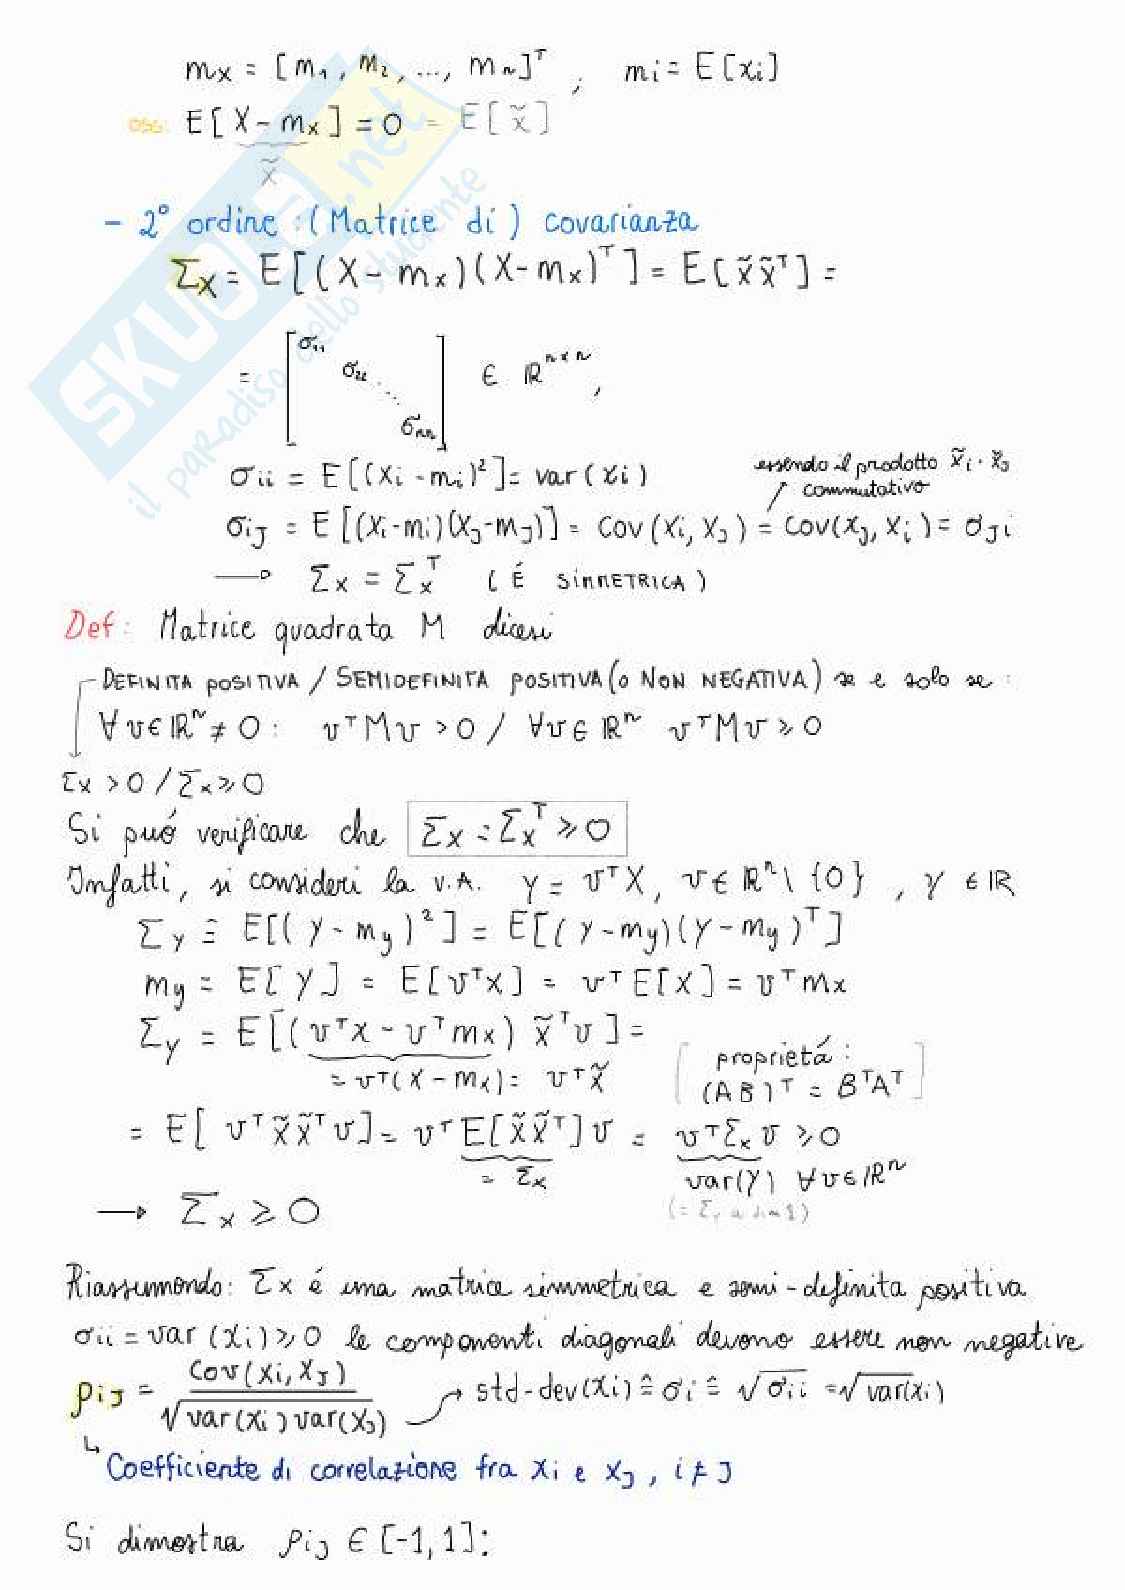 mx = [m1, m2, ..., mn]ᵀ ; mi = E[xi]
oss: E[X - mx] = 0 = E[x̃]
x̃
- 2° ordine : (Matrice di) covarianza
Σx = E[(X - mx)(X - mx)ᵀ] = E[x̃x̃ᵀ] =
= [σ11 σ22 ... σnn] ∈ ℝⁿˣⁿ,
σii = E[(xi - mi)²] = var(xi)
essendo il prodotto x̃i · x̃J
commutativo
σiJ = E[(xi-mi)(xJ-mJ)] = Cov(xi, xJ) = Cov(xJ, xi) = σJi
→ Σx = Σxᵀ (É SIMMETRICA)
Def: Matrice quadrata M dicesi
DEFINITA POSITIVA / SEMIDEFINITA POSITIVA (o NON NEGATIVA) se e solo se :
∀v∈ℝⁿ≠0 : vᵀMv > 0 / ∀v∈ℝⁿ vᵀMv ≥ 0
Σx > 0 / Σx ≥ 0
Si puó verificare che Σx = Σxᵀ ≥ 0
Infatti, si consideri la v.A. Y = vᵀX, v∈ℝⁿ\{0}, Y ∈ℝ
ΣY ≡ E[(Y - my)²] = E[(Y-my)(Y-my)ᵀ]
my = E[Y] = E[vᵀX] = vᵀE[X] = vᵀmx
ΣY = E[(vᵀx - vᵀmx) x̃ᵀv] =
= vᵀ(X - mx) = vᵀx̃
[proprietá :
(AB)ᵀ = BᵀAᵀ]
= E[vᵀx̃x̃ᵀv] = vᵀE[x̃x̃ᵀ]v = vᵀΣxv ≥ 0
= Σx
var(Y) ∀v∈ℝⁿ
→ Σx ≥ 0
Riassumendo: Σx é una matrice simmetrica e semi-definita positiva
σii = var(xi) ≥ 0 le componenti diagonali devono essere non negative
ρiJ = Cov(xi, xJ) / √var(xi)var(xJ) → std-dev(xi) ≙ σi ≙ √σii = √var(xi)
Coefficiente di correlazione fra xi e xJ, i≠J
Si dimostra ρiJ ∈ [-1, 1]:
SKUOLA.net
il paradiso dello studente